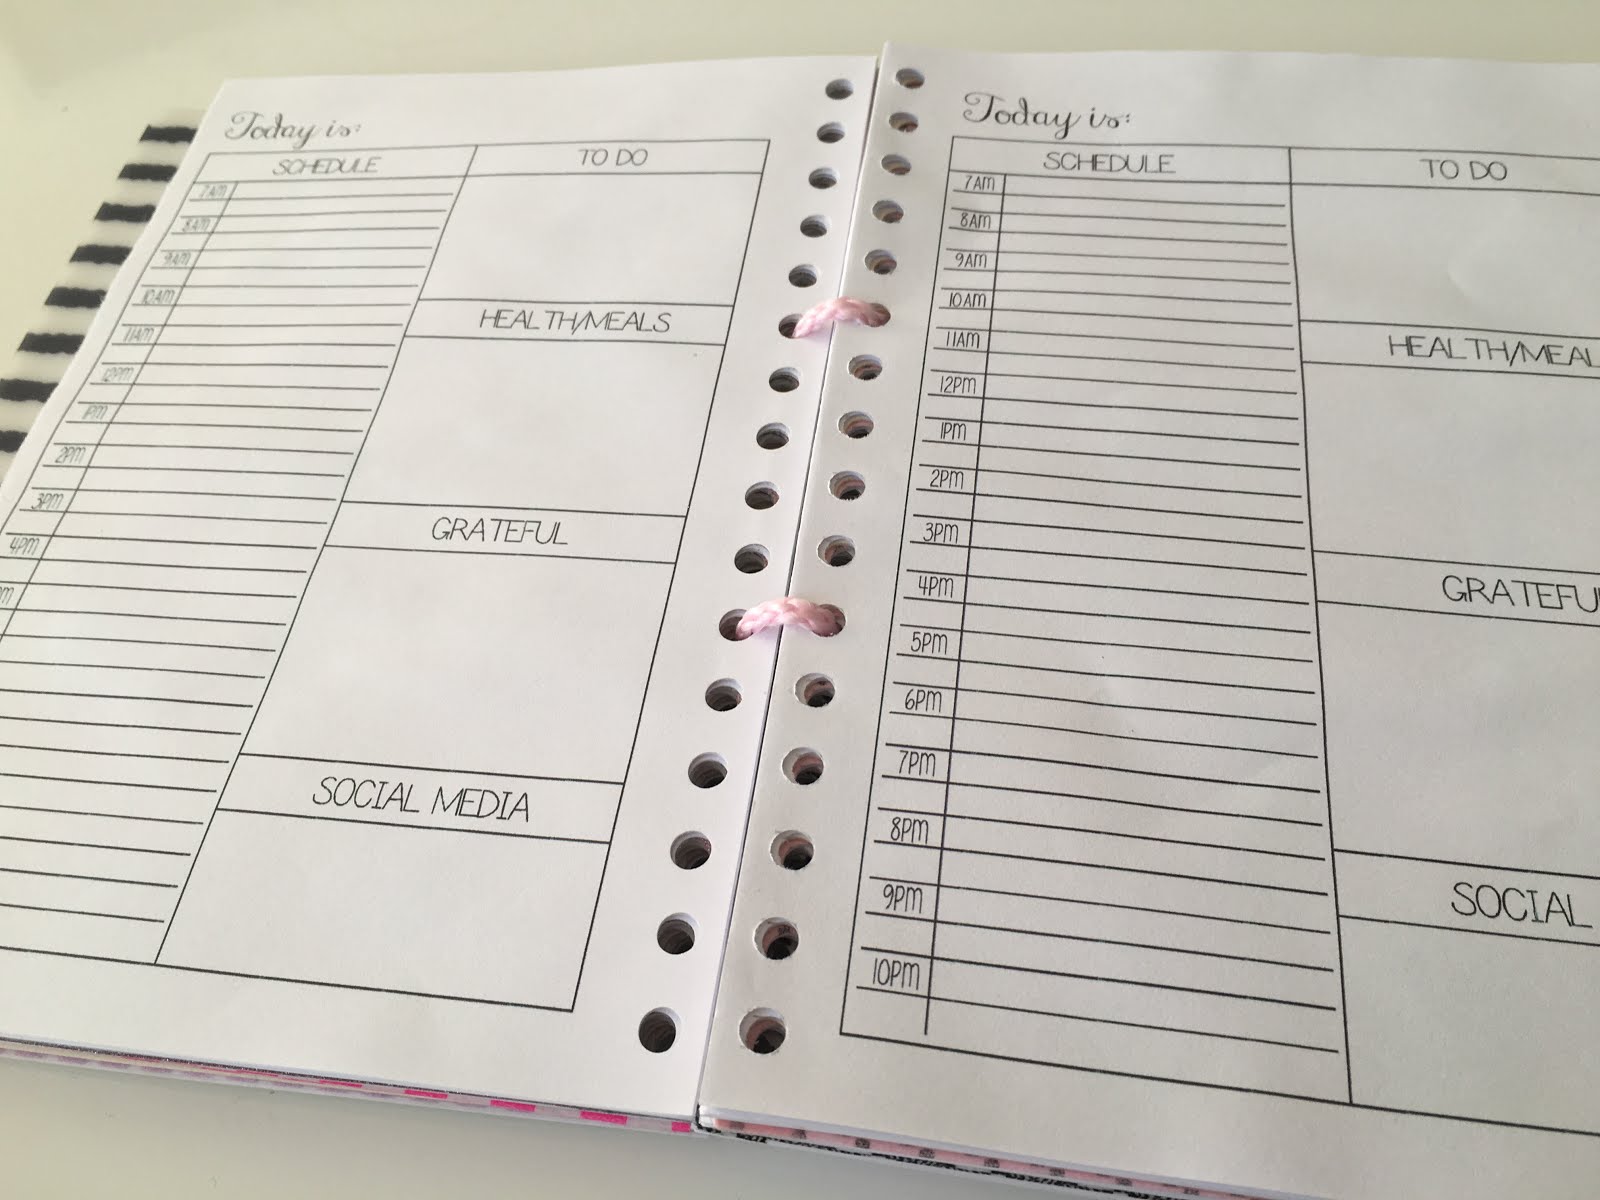 Today is:
SCHEDULE
TO DO
7AM
8AM
9AM
10AM
11AM
12PM
1PM
2PM
3PM
4PM
HEALTH/MEALS
GRATEFUL
SOCIAL MEDIA
Today is:
SCHEDULE
TO DO
7AM
8AM
9AM
10AM
11AM
12PM
1PM
2PM
3PM
4PM
5PM
6PM
7PM
8PM
9PM
10PM
HEALTH/MEAL
GRATEFU
SOCIAL